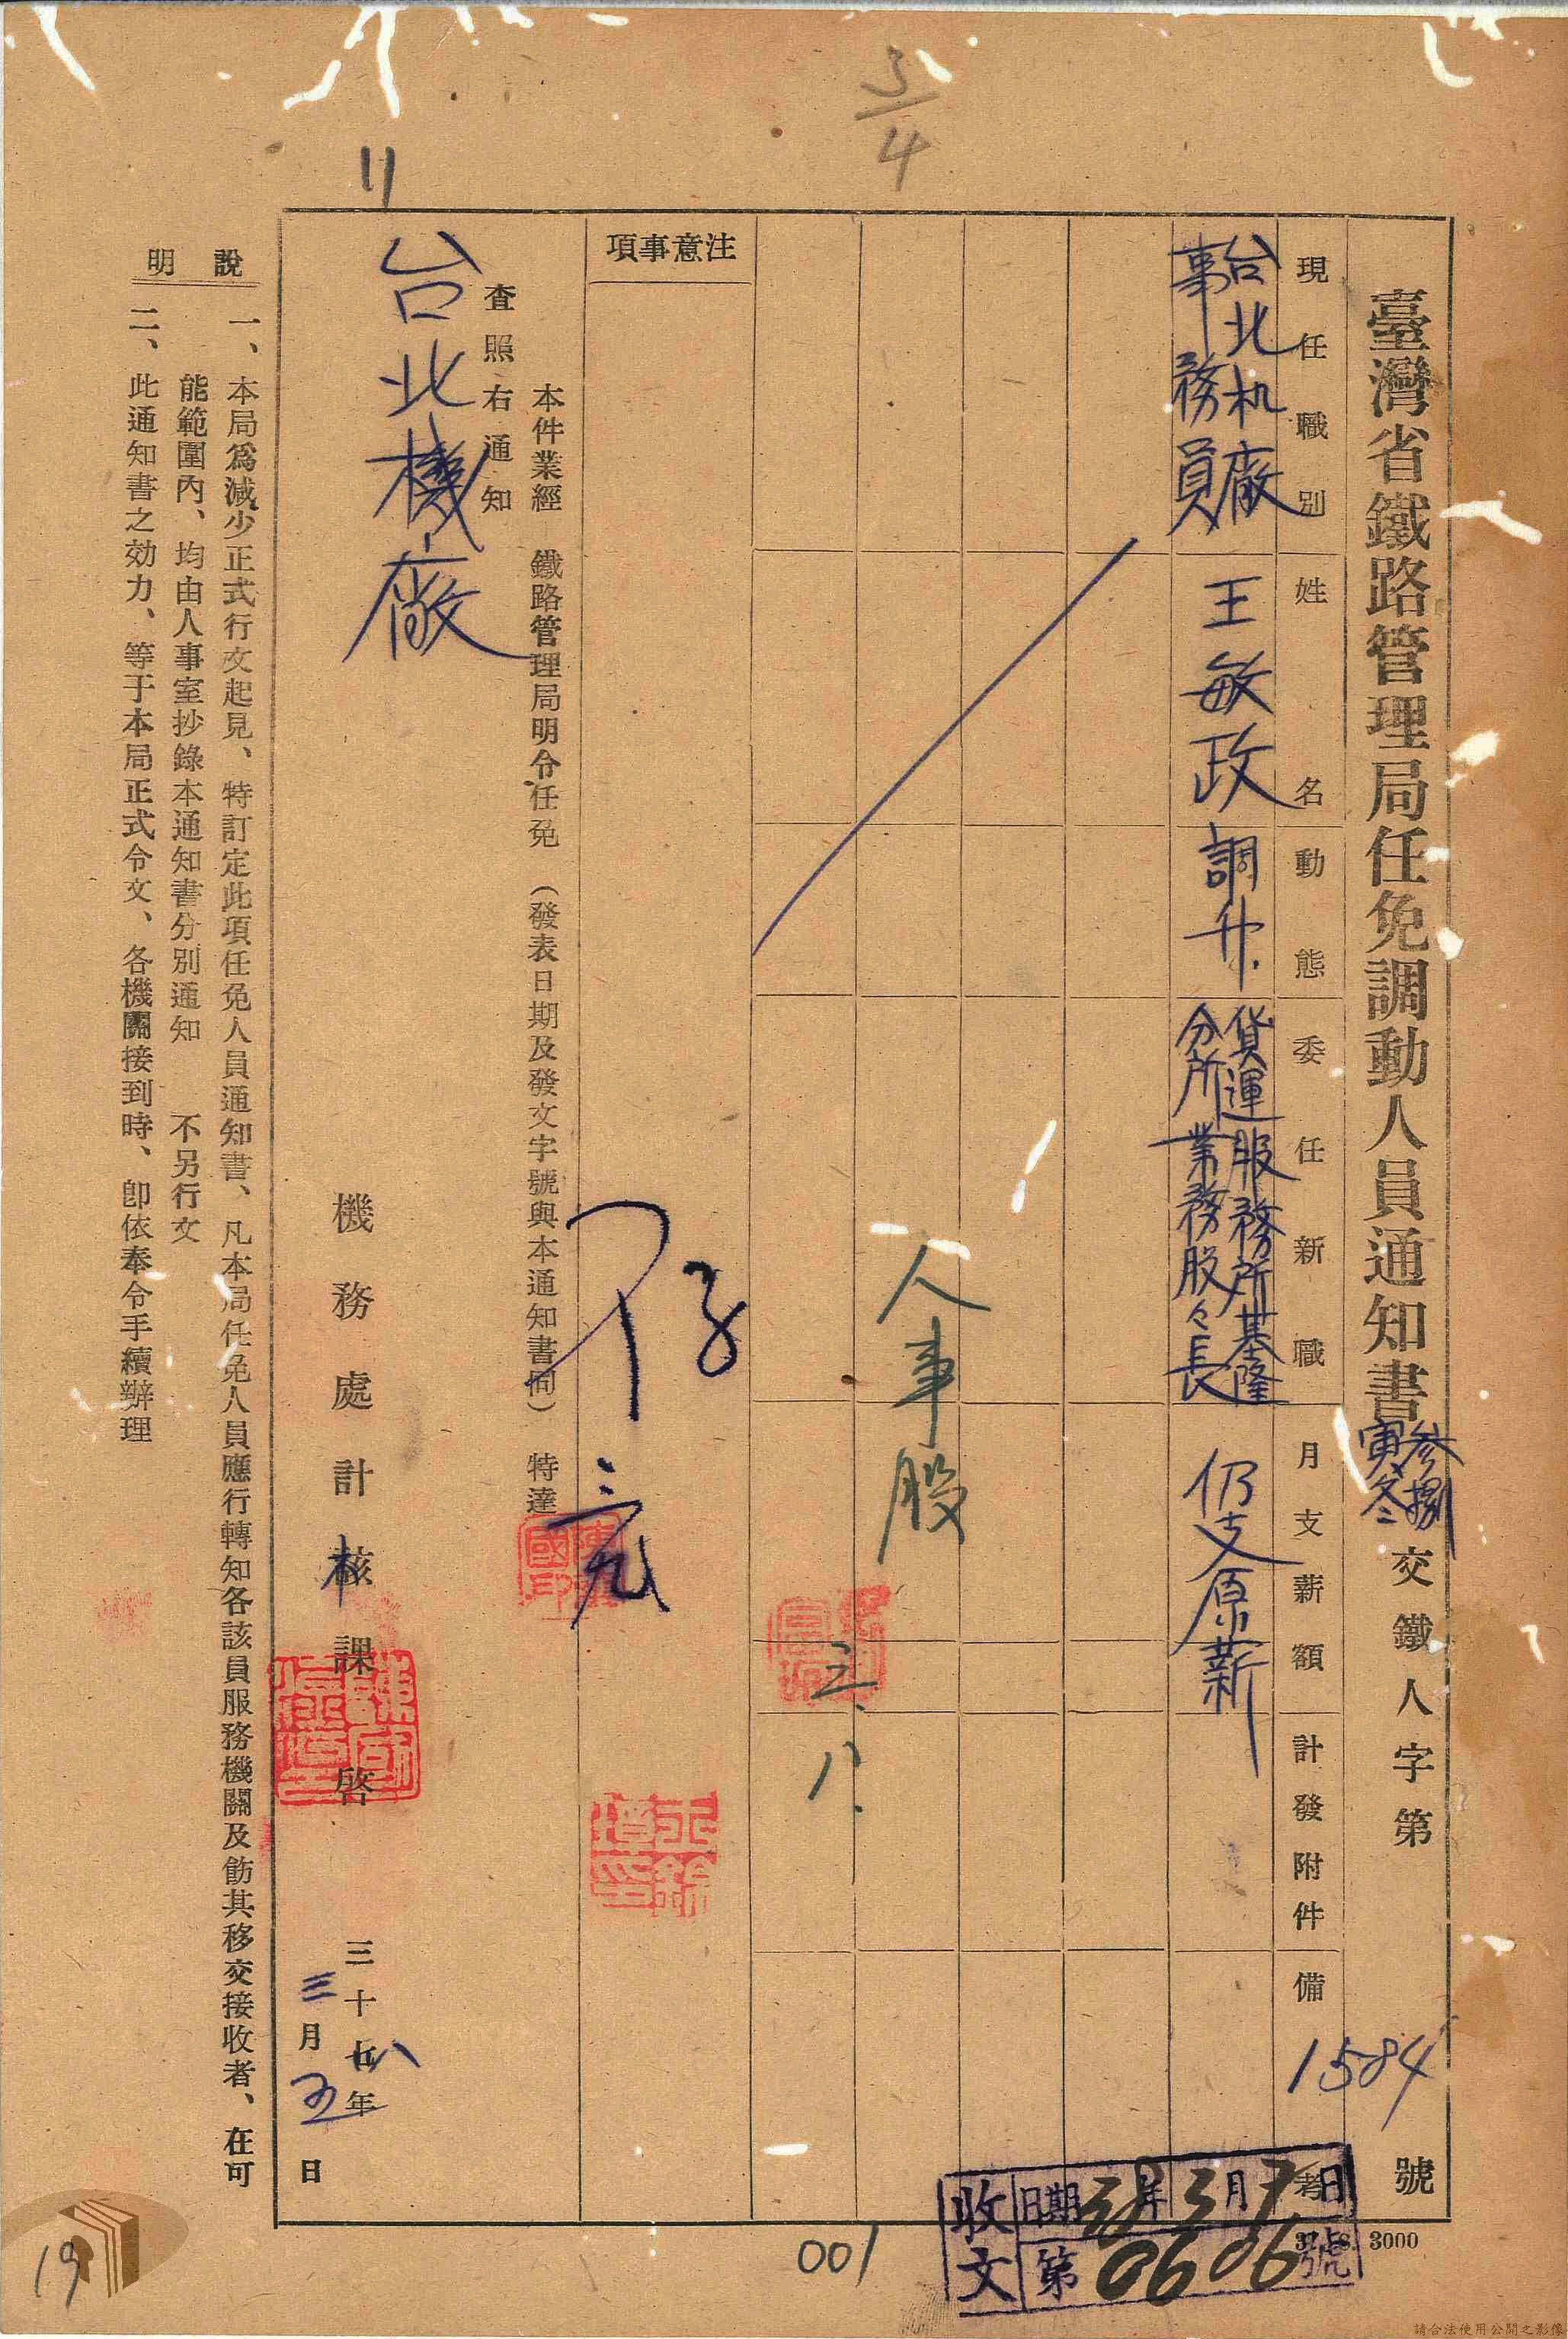 3/4
臺灣省鐵路管理局任免調動人員通知書
參捌寅冬交鐵人字第1584號
現任職別
姓名
動態
委任新職
月支薪額
計發附件
備考
台北机廠
事務員
王敏政
調升
貨運服務所基隆
分所業務股々長
仍支原薪
人事股
三、八、
注意事項
本件業經 鐵路管理局明令任免(發表日期及發文字號與本通知書同)特達
查照右通知
台北機廠
機務處計核課啓
三十八年
三月五日
說明
一、本局為減少正式行文起見、特訂定此項任免人員通知書、凡本局任免人員應行轉知各該員服務機關及飭其移交接收者、在可
能範圍內、均由人事室抄錄本通知書分別通知 不另行文
二、此通知書之効力、等于本局正式令文、各機關接到時、卽依奉令手續辦理
收文
日期38年3月7日
第0606號
3000
001
19
請合法使用公開之影像